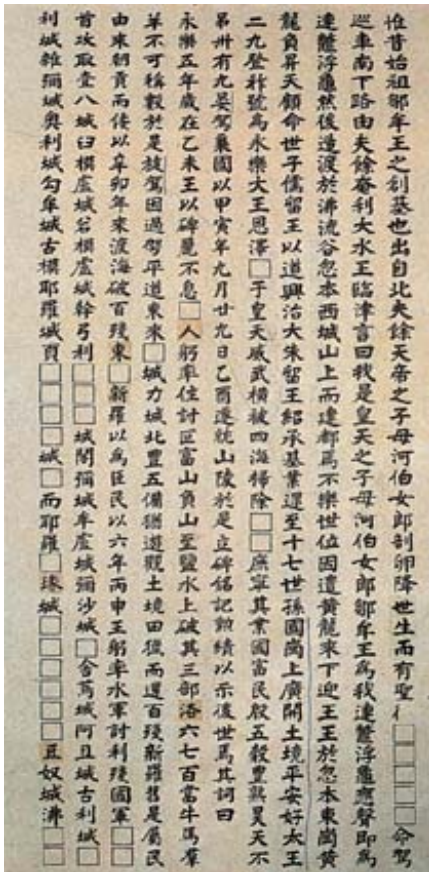 惟昔始祖鄒牟王之創基也出自北夫餘天帝之子母河伯女郎剖卵降世生而有聖亻□□□□□命駕
巡車南下路由夫餘奄利大水王臨津言曰我是皇天之子母河伯女郎鄒牟王爲我連鼈浮龜應聲即爲
連鼈浮龜然後造渡於沸流谷忽本西城山上而建都焉不樂世位因遣黃龍來下迎王王於忽本東崗黃
龍負昇天顧命世子儒留王以道興治大朱留王紹承基業遝至十七世孫國崗上廣開土境平安好太王
二九登祚號爲永樂大王恩澤□于皇天威武橫被四海掃除□□庶寧其業國富民殷五穀豊熟昊天不
弔卅有九晏駕棄國以甲寅年九月廿九日乙酉遷就山陵於是立碑銘記勲績以示後世焉其詞曰
永樂五年歲在乙未王以碑麗不息□人躬率住討叵富山負山至鹽水上破其三部洛六七百當牛馬羣
羊不可稱數於是旋駕因過平道東來□城力城北豊五備猶遊觀土境田獵而還百殘新羅舊是屬民
由來朝貢而倭以辛卯年來渡海破百殘東□新羅以爲臣民以六年丙申王躬率水軍討利殘國軍□□
首攻取壹八城臼模盧城各模盧城幹弓利□□城閣彌城牟盧城彌沙城□舍蔦城阿旦城古利城□
利城雜彌城奧利城勾牟城古模耶羅城頁□□□□城□而耶羅□瑑城□□□□□□豆奴城沸□□